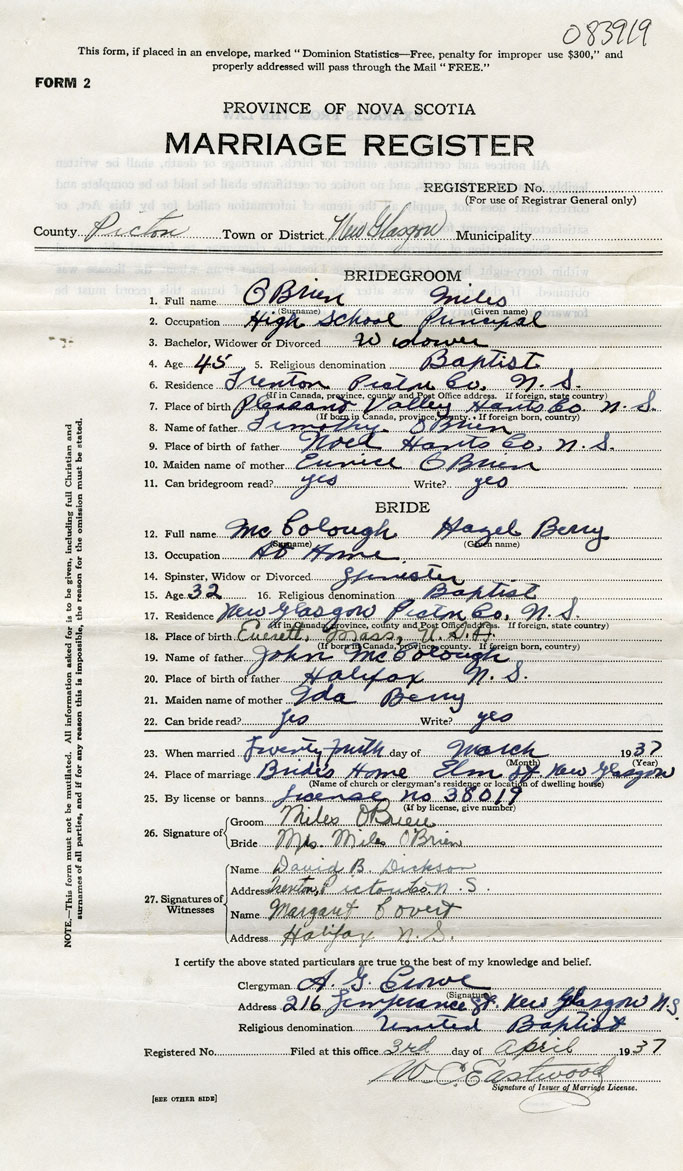 083919
This form, if placed in an envelope, marked "Dominion Statistics—Free, penalty for improper use $300," and
properly addressed will pass through the Mail "FREE."
FORM 2
PROVINCE OF NOVA SCOTIA
MARRIAGE REGISTER
REGISTERED No.
(For use of Registrar General only)
County Pictou Town or District New Glasgow Municipality
BRIDEGROOM
1. Full name O'Brien Miles
(Surname) (Given name)
2. Occupation High School Principal
3. Bachelor, Widower or Divorced Widower
4. Age 45 5. Religious denomination Baptist
6. Residence Trenton Pictou Co. N. S.
(If in Canada, province, county and Post Office address. If foreign, state country)
7. Place of birth Pleasant Valley Hants Co. N. S.
(If born in Canada, province, county. If foreign born, country)
8. Name of father Timothy O'Brien
9. Place of birth of father Noel Hants Co. N. S.
10. Maiden name of mother Eunice O'Brien
11. Can bridegroom read? yes Write? yes
BRIDE
12. Full name McColough Hazel Berry
(Surname) (Given name)
13. Occupation At Home
14. Spinster, Widow or Divorced Spinster
15. Age 32 16. Religious denomination Baptist
17. Residence New Glasgow Pictou Co. N. S.
(If in Canada, province, county and Post Office address. If foreign, state country)
18. Place of birth Everett, Mass, U. S. A.
(If born in Canada, province, county. If foreign born, country)
19. Name of father John McColough
20. Place of birth of father Halifax N. S.
21. Maiden name of mother Ida Berry
22. Can bride read? yes Write? yes
23. When married Twenty Fourth day of March 1937
(Month) (Year)
24. Place of marriage Brides Home Elm St. New Glasgow
(Name of church or clergyman's residence or location of dwelling house)
25. By license or banns License no 38019
(If by license, give number)
26. Signature of
Groom Miles O'Brien
Bride Mrs. Miles O'Brien
27. Signatures of Witnesses
Name David B. Dickson
Address Trenton, Pictou Co. N. S.
Name Margaret Covert
Address Halifax N. S.
I certify the above stated particulars are true to the best of my knowledge and belief.
Clergyman A. G. Crowe
(Signature)
Address 216 Temperance St. New Glasgow N. S.
Religious denomination United Baptist
Registered No. Filed at this office 3rd day of April 1937
W. C. Eastwood
Signature of Issuer of Marriage License.
[SEE OTHER SIDE]
NOTE.—This form must not be mutilated. All information asked for is to be given, including full Christian and
surnames of all parties, and if for any reason this is impossible, the reason for the omission must be stated.